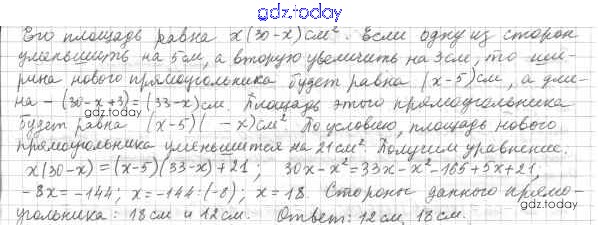 gdz.today
Его площадь равна x(30-x) см². Если одну из сторон
уменьшить на 5 см, а вторую увеличить на 3 см, то ши-
рина нового прямоугольника будет равна (x-5) см, а дли-
на - (30-x+3) = (33-x) см. Площадь этого прямоугольника
gdz.today
будет равна (x-5)( -x) см². По условию, площадь нового
прямоугольника уменьшится на 21 см². Получим уравнение.
x(30-x) = (x-5)(33-x)+21; 30x-x² = 33x-x²-165+5x+21;
-8x = -144; x = -144:(-8); x = 18. Стороны данного прямо-
угольника: 18 см и 12 см. Ответ: 12 см, 18 см.
gdz.today